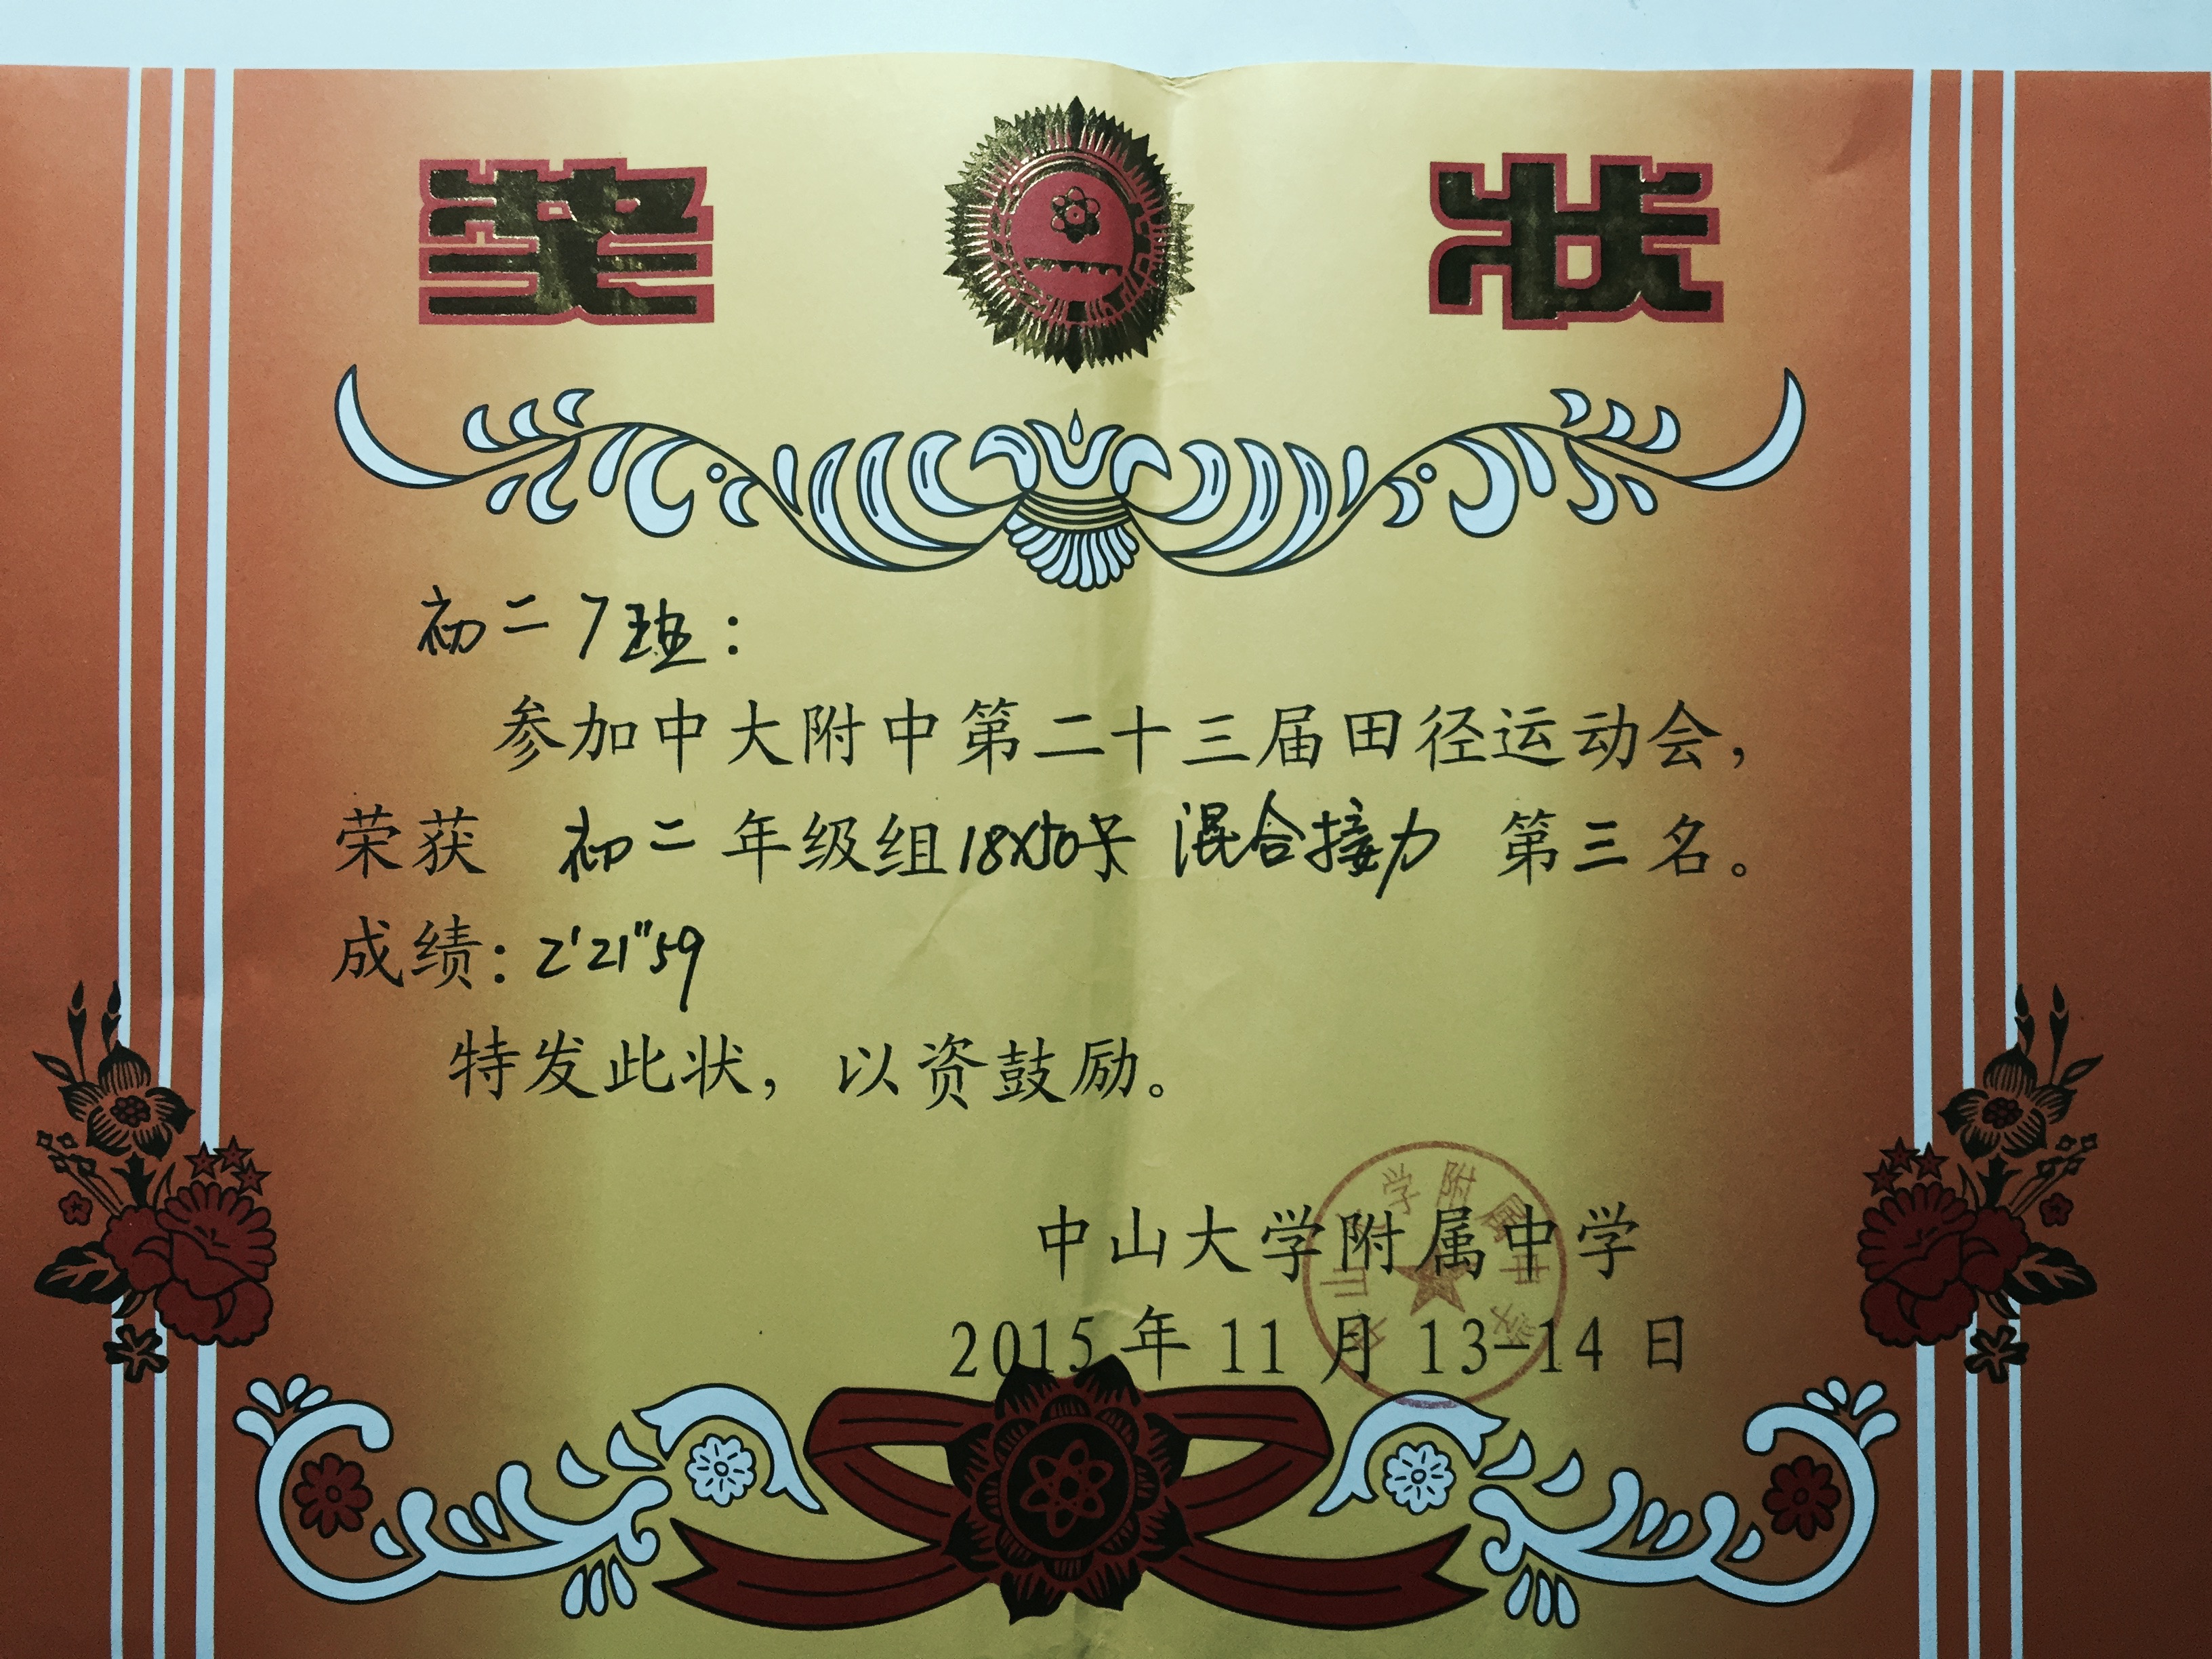 奖状
初二7班：
参加中大附中第二十三届田径运动会，
荣获 初二年级组18×50米 混合接力 第三名。
成绩：2'21"59
特发此状，以资鼓励。
中山大学附属中学
2015年11月13-14日
中山大学附属中学